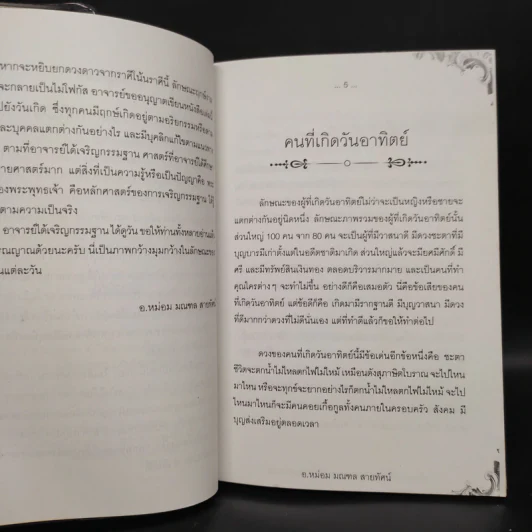 หากจะหยิบยกดวงดาวจากราศีโน้นราศีนี้
จะกลายเป็นไม่โฟกัส อาจารย์ขออนุญาตเขียนหนังสือเล่มนี้
ปยังวันเกิด ซึ่งทุกคนมีฤกษ์เกิดอยู่ตามอริยกรรมหรือตาม
ละบุคคลแตกต่างกันอย่างไร และมีบุคลิกแก้ไขตามแนวทาง
ตามที่อาจารย์ได้เจริญกรรมฐาน ศาสตร์ที่อาจารย์ได้ศึกษา
ายศาสตร์มาก แต่สิ่งที่เป็นความรู้หรือเป็นปัญญาคือ
องพระพุทธเจ้า คือหลักศาสตร์ของการเจริญกรรมฐาน ได้
ตามความเป็นจริง
อาจารย์ได้เจริญกรรมฐาน ได้ดูวัน ขอให้ท่านทั้งหลายอ่านแล้ว
รณญาณด้วยนะครับ นี่เป็นภาพกว้างมุมกว้างในลักษณะของ
นแต่ละวัน
อ.หม่อม มณฑล สายทัศน์
... 5 ...
คนที่เกิดวันอาทิตย์
ลักษณะของผู้ที่เกิดวันอาทิตย์ไม่ว่าจะเป็นหญิงหรือชายจะ
แตกต่างกันอยู่นิดหนึ่ง ลักษณะภาพรวมของผู้ที่เกิดวันอาทิตย์นั้น
ส่วนใหญ่ 100 คน จาก 80 คน จะเป็นผู้ที่มีวาสนาดี มีดวงชะตาที่มี
บุญบารมีเก่าตั้งแต่ในอดีตชาติมาเกิด ส่วนใหญ่แล้วจะมียศมีศักดิ์ มี
ศรี และมีทรัพย์สินเงินทอง ตลอดบริวารมากมาย และเป็นคนที่ทำ
คุณใครต่างๆ จะทำไม่ขึ้น อย่างดีก็คือเสมอตัว นี่คือข้อเสียของคน
ที่เกิดวันอาทิตย์ แต่ข้อดีก็คือ เกิดมามีรากฐานดี มีบุญวาสนา มีดวง
ที่ดีมากกว่าดวงที่ไม่ดีนั่นเอง แต่ที่ทำดีแล้วก็ขอให้ทำต่อไป
ดวงของคนที่เกิดวันอาทิตย์นี้มีข้อเด่นอีกข้อหนึ่งคือ ชะตา
ชีวิตจะตกน้ำไม่ไหลตกไฟไม่ไหม้ เหมือนดังสุภาษิตโบราณ จะไปไหน
มาไหน หรือจะทุกข์จะยากอย่างไรก็ตกน้ำไม่ไหลตกไฟไม่ไหม้ จะไป
ไหนมาไหนก็จะมีคนคอยเกื้อกูลทั้งคนภายในครอบครัว สังคม มี
บุญส่งเสริมอยู่ตลอดเวลา
อ.หม่อม มณฑล สายทัศน์